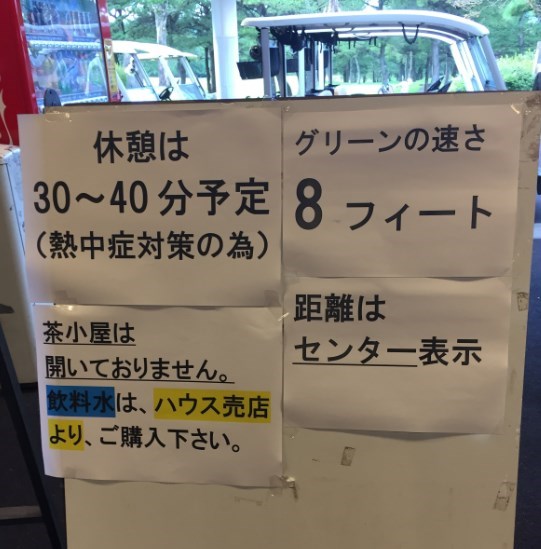 休憩は
30～40分予定
(熱中症対策の為)
グリーンの速さ
8 フィート
茶小屋は
開いておりません。
飲料水は、ハウス売店
より、ご購入下さい。
距離は
センター表示